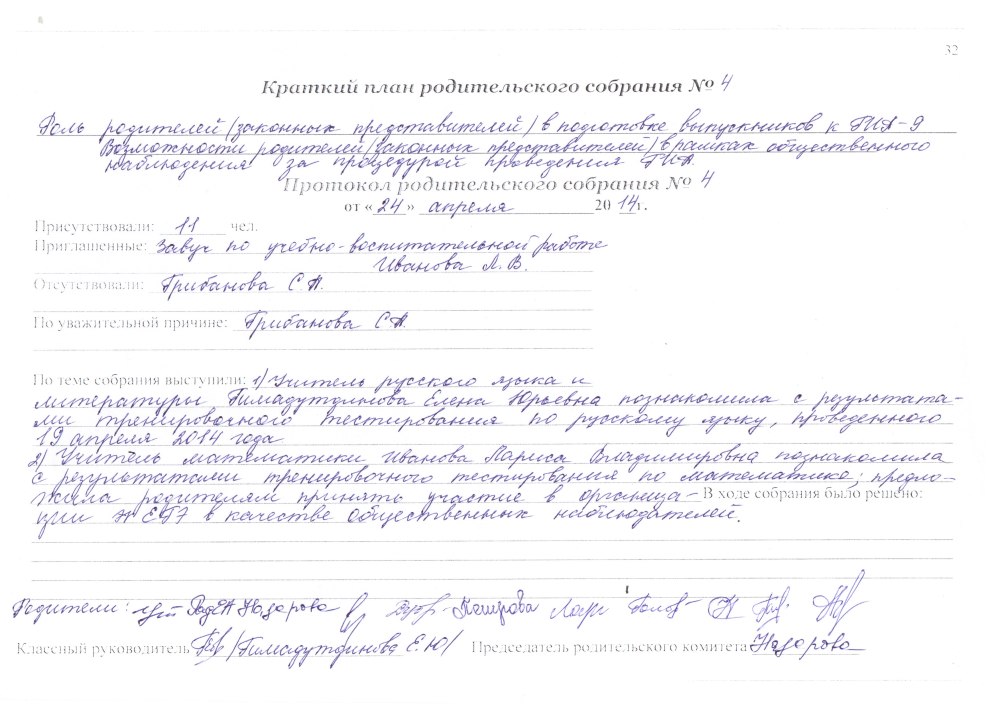 32
Краткий план родительского собрания № 4
Роль родителей /законных представителей/ в подготовке выпускников к ГИА-9
Возможности родителей /законных представителей/ в рамках общественного
наблюдения за процедурой проведения ГИА.
Протокол родительского собрания № 4
от «24» апреля 2014г.
Присутствовали: 11 чел.
Приглашенные: Завуч по учебно-воспитательной работе
Иванова Л.В.
Отсутствовали: Грибанова С.А.
По уважительной причине: Грибанова С.А.
По теме собрания выступили: 1) Учитель русского языка и
литературы Гимадутдинова Елена Юрьевна познакомила с результата-
ми тренировочного тестирования по русскому языку, проведенного
19 апреля 2014 года
2) Учитель математики Иванова Лариса Владимировна познакомила
с результатами тренировочного тестирования по математике; предло-
жила родителям принять участие в органица- В ходе собрания было решено:
ции ЕГЭ в качестве общественных наблюдателей.
Родители: Назарова Каширова
Классный руководитель /Гимадутдинова Е.Ю/ Председатель родительского комитета Назарова